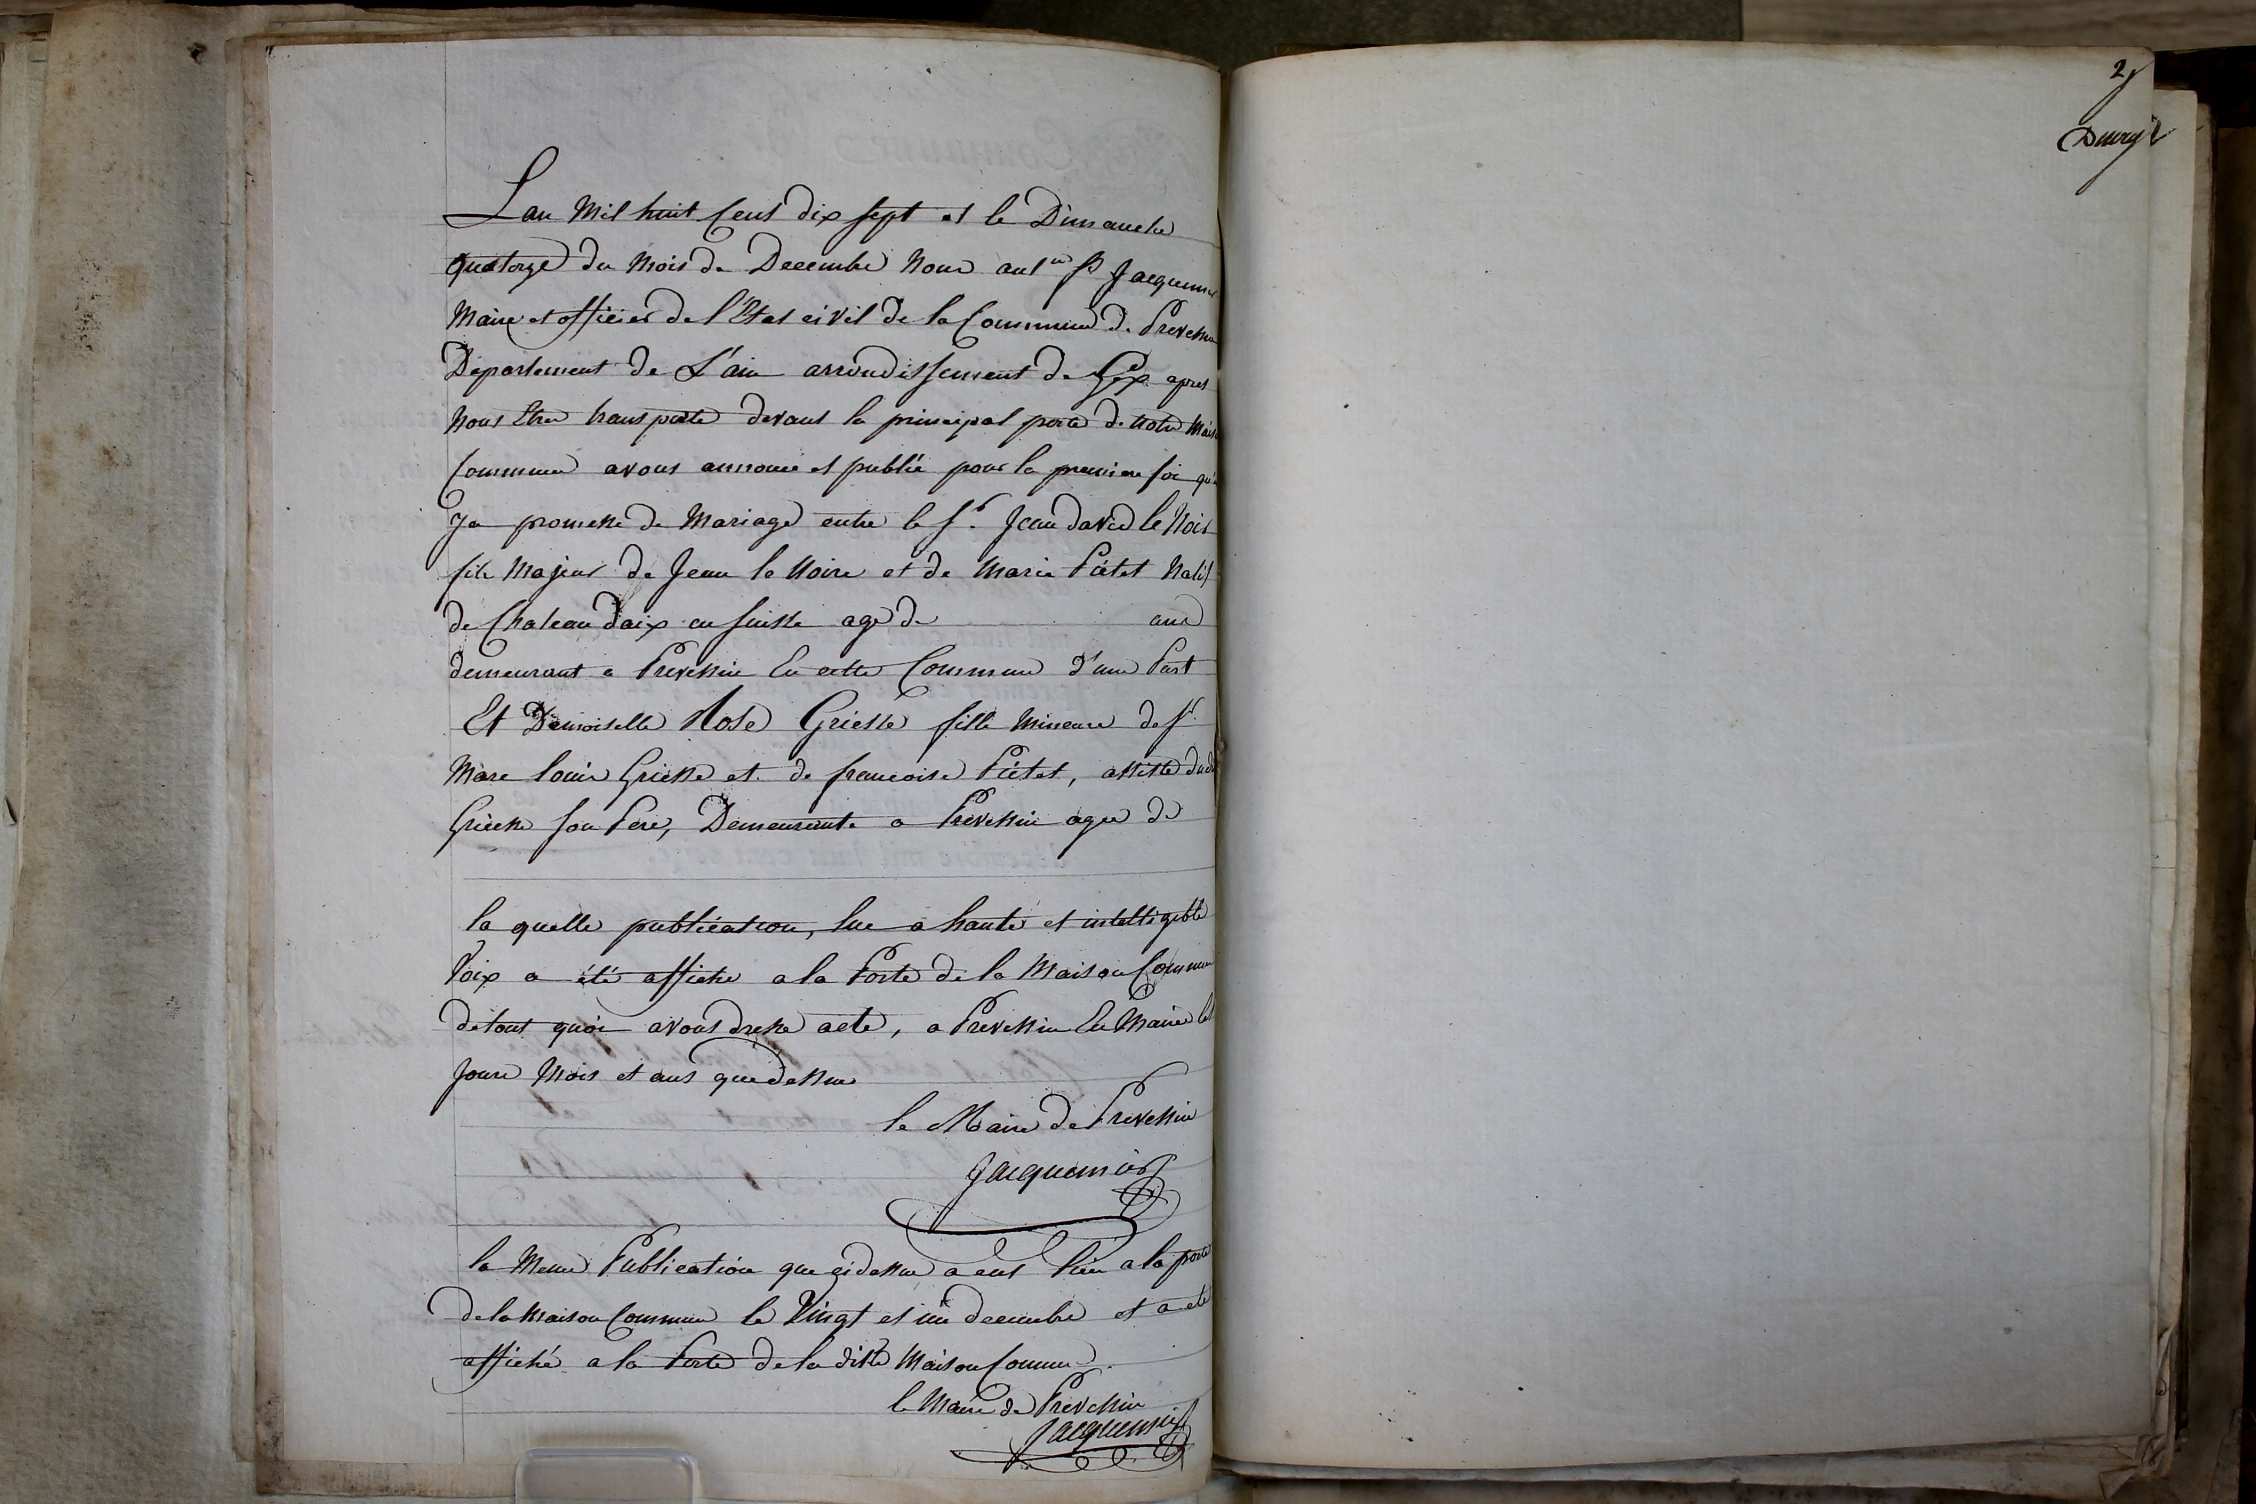 Lan Mil huit Cent dix sept et le Dimanche
quatorze du Mois de Decembre Nous antne Jacquemier
Maire et officier de l'Etat civil de la Commune de Prevessin
Departement de L'ain arrondissement de Gex apres
Nous Etre transporté devant la principal porte de notre Maison
Commune avons annoncé et publié pour la premiere foi qu'il
Ja promesse de Mariage entre le Sr. Jean david le Noir
fils Majeur de Jean le Noire et de Marie Pictet Natif
de Chateau daix en Suisse age de ans
demeurant a Prevessin En cette Commune d'une Part
Et Demoiselle Rose Griesse fille Mineure de Sr.
Marc Louis Griesse et de francoise Pictet, assisté dudt
Griesse son Pere, Demeurante a Prevessin agee de
la quelle publication, lue a haute et intelligible
Voix a été affiché a la Porte de la Maison Commune
de tout quoi avons dressé acte, a Prevessin En Mairie les
Jours Mois et ans que dessus
le Maire de Prevessin
Jacquemier
la Meme Publication que cidessus a eut lieu a la porte
de la Maison Commune le Vingt et un decembre et a eté
affiché a la Porte de la dite Maison Commune.
le Maire de Prevessin
Jacquemier
2